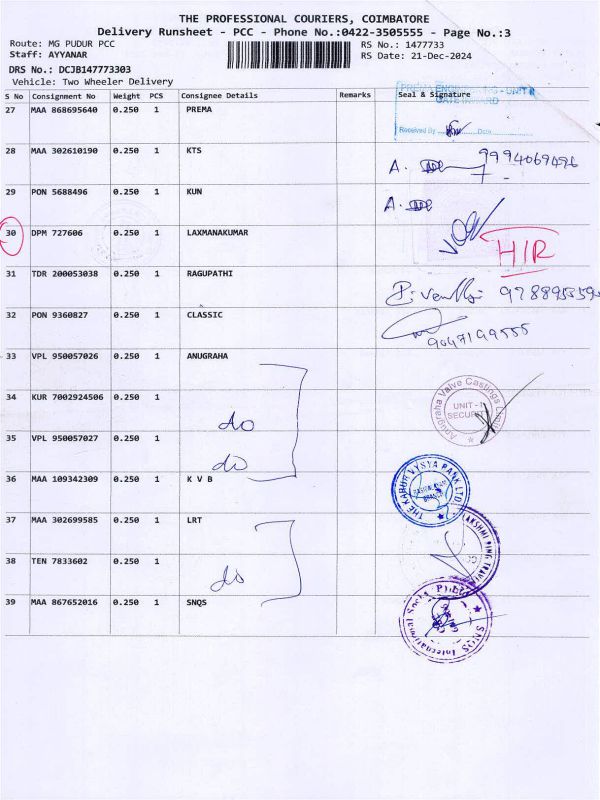 THE PROFESSIONAL COURIERS, COIMBATORE
Delivery Runsheet - PCC - Phone No.:0422-3505555 - Page No.:3
Route: MG PUDUR PCC
RS No.: 1477733
Staff: AYYANAR
RS Date: 21-Dec-2024
DRS No.: DCJB147773303
Vehicle: Two Wheeler Delivery
S No Consignment No Weight PCS Consignee Details Remarks Seal & Signature
27 MAA 868695640 0.250 1 PREMA
Received By Date
28 MAA 302610190 0.250 1 KTS
A. 9994069496
29 PON 5688496 0.250 1 KUN
A.
30 DPM 727606 0.250 1 LAXMANAKUMAR
H/R
31 TDR 200053038 0.250 1 RAGUPATHI
32 PON 9360827 0.250 1 CLASSIC
9047199555
33 VPL 950057026 0.250 1 ANUGRAHA
34 KUR 7002924506 0.250 1 do
Anugraha Valve Castings Limited
UNIT - I
SECURITY
35 VPL 950057027 0.250 1 do
36 MAA 109342309 0.250 1 K V B
THE KARUR VYSYA BANK LTD
37 MAA 302699585 0.250 1 LRT
38 TEN 7833602 0.250 1 do
39 MAA 867652016 0.250 1 SNQS
SNQS International Socks P